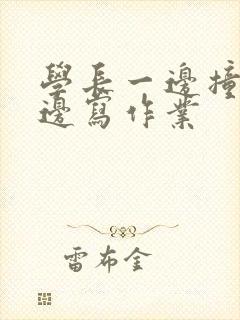 學長一邊撞
邊寫作業
雷布金